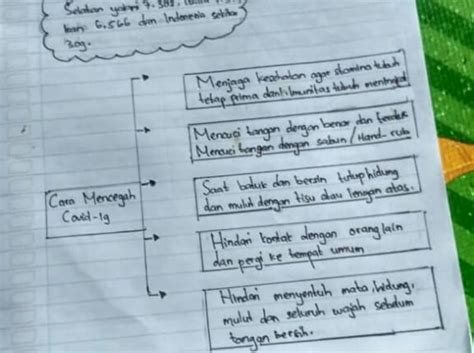 Selatan yakni 7.383,
Iran 6.566 dan Indonesia sekitar
309.
Menjaga kesehatan agar stamina tubuh
tetap prima dan imunitas tubuh meningkat
Mencuci tangan dengan benar dan
Mencuci tangan dengan sabun / Hand-rub
Cara Mencegah
Covid-19
Saat batuk dan bersin tutup hidung
dan mulut dengan tisu atau lengan atas.
Hindari kontak dengan orang lain
dan pergi ke tempat umum
Hindari menyentuh mata, hidung,
mulut dan seluruh wajah sebelum
tangan bersih.